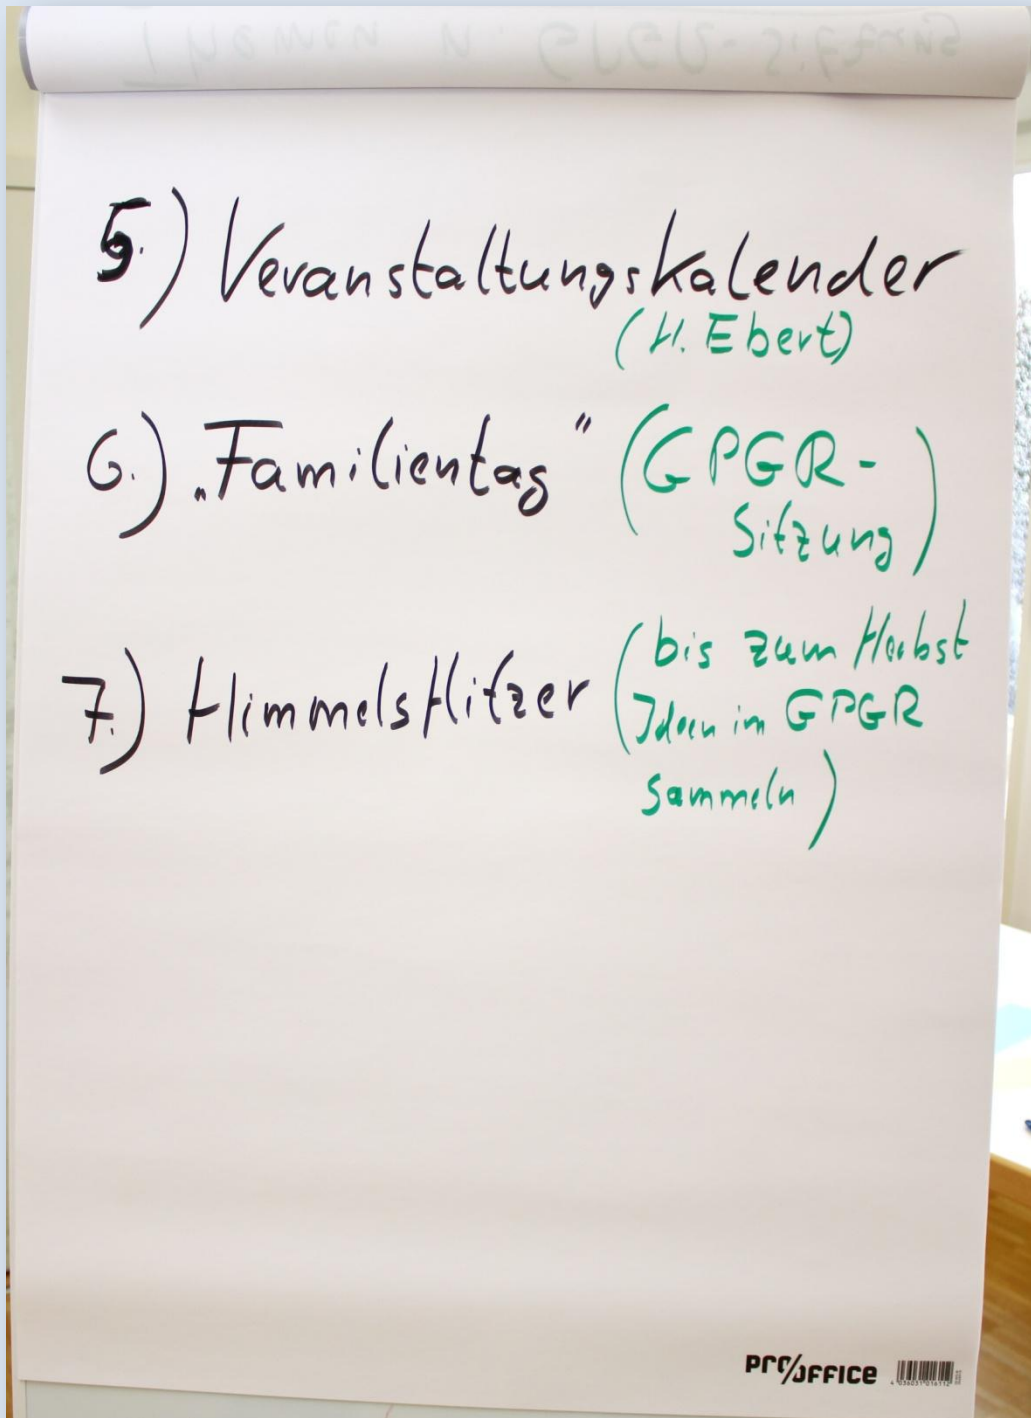 5.) Veranstaltungskalender
(H. Ebert)
6.) „Familientag“ (GPGR-
Sitzung)
7.) HimmelsHitzer (bis zum Herbst
Ideen im GPGR
sammeln)
PRO/OFFICE